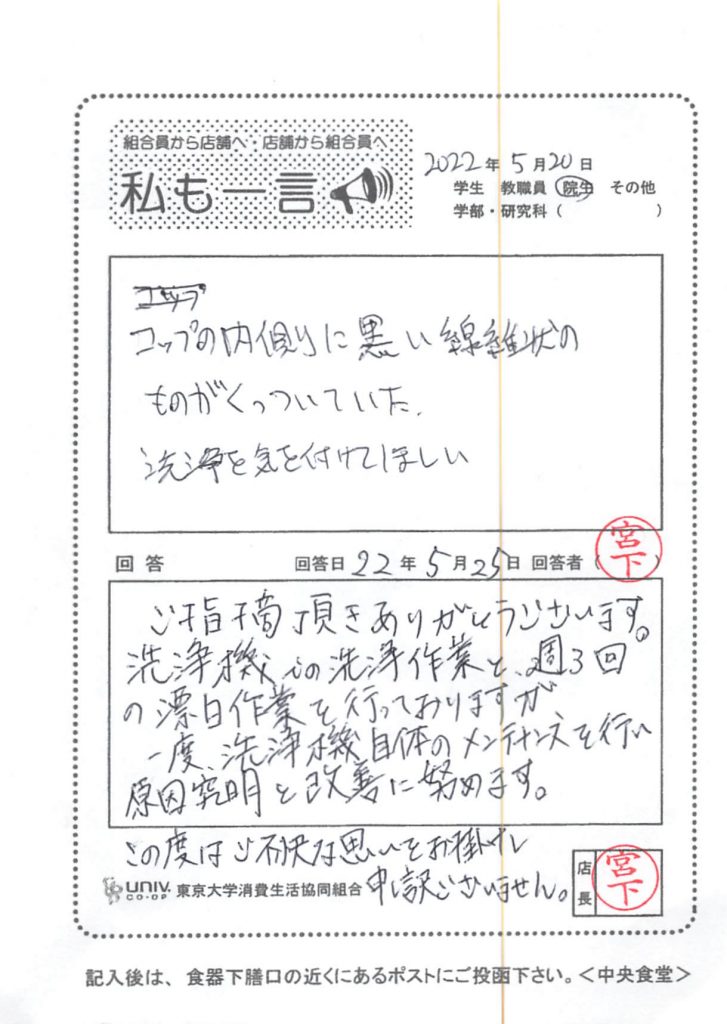 組合員から店舗へ・店舗から組合員へ
私も一言
2022年5月20日
学生 教職員 院生 その他
学部・研究科( )
コップ
コップの内側に黒い繊維状の
ものがくっついていた.
洗浄を気を付けてほしい
回答 回答日 22年5月25日 回答者(宮下)
ご指摘頂きありがとうございます。
洗浄機での洗浄作業と、週3回
の漂白作業を行っておりますが
一度、洗浄機自体のメンテナンスを行い
原因究明と改善に努めます。
この度はご不快な思いをお掛けし
申し訳ございません。
UNIV. CO-OP 東京大学消費生活協同組合
店長 宮下
記入後は、食器下膳口の近くにあるポストにご投函下さい。<中央食堂>